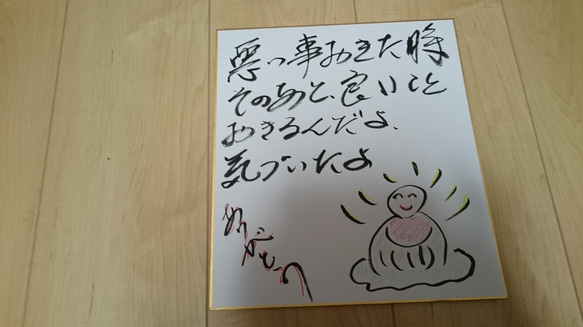 悪い事おきた時
そのあと、良いこと
おきるんだよ、
気づいたよ